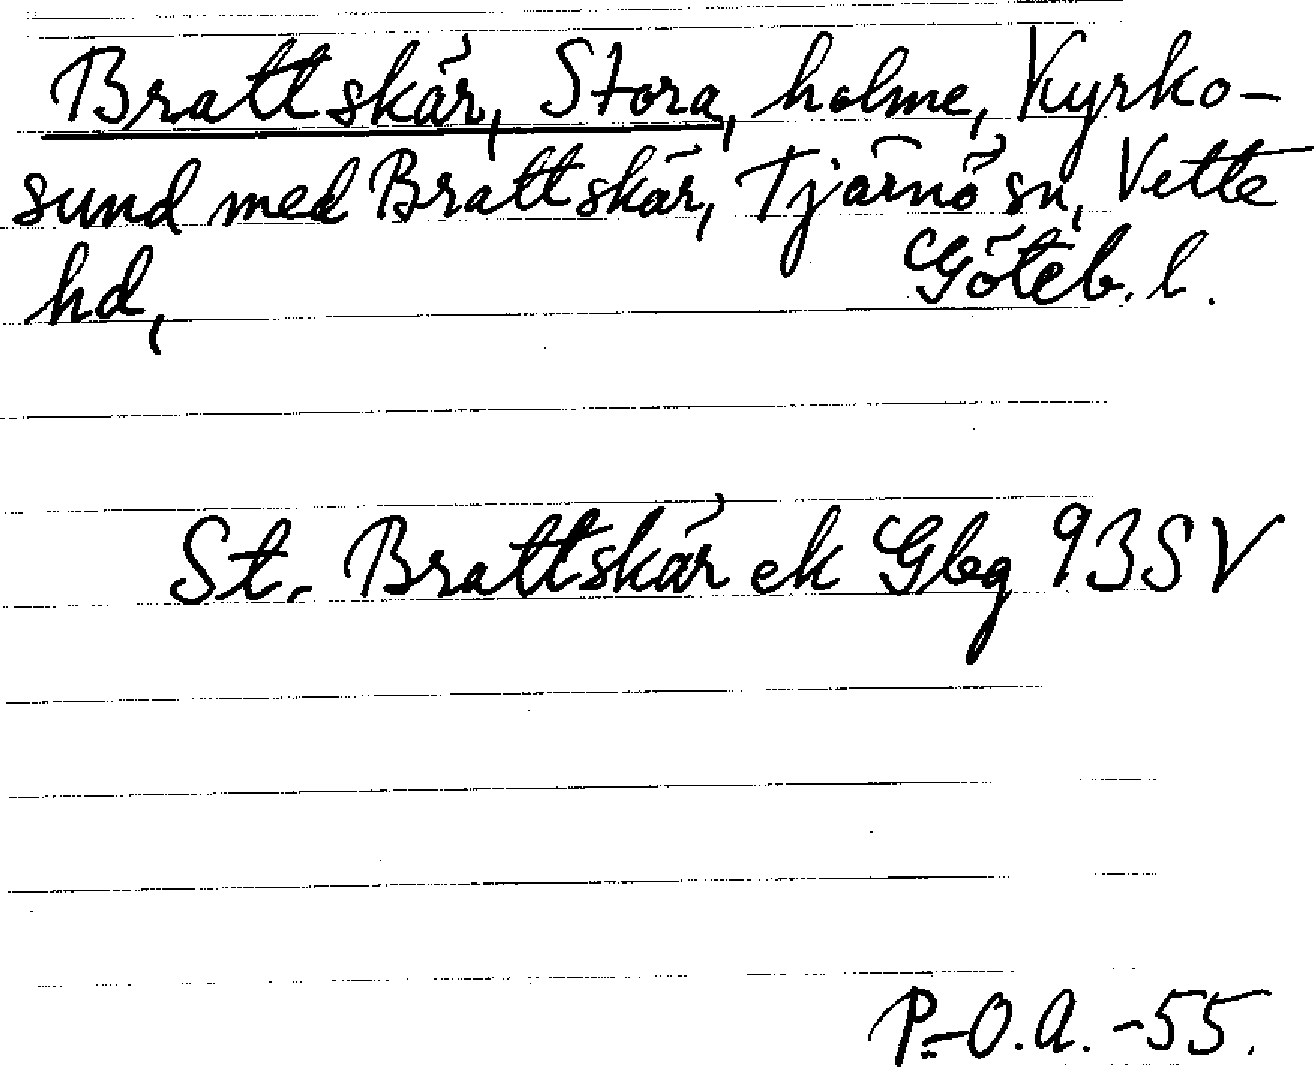 Brattskär, Stora, holme, Kyrko-
sund med Brattskär, Tjärnö sn, Vette
hd, Göteb. l.
St. Brattskär ek Gbg 93SV
P.-O.A. -55.